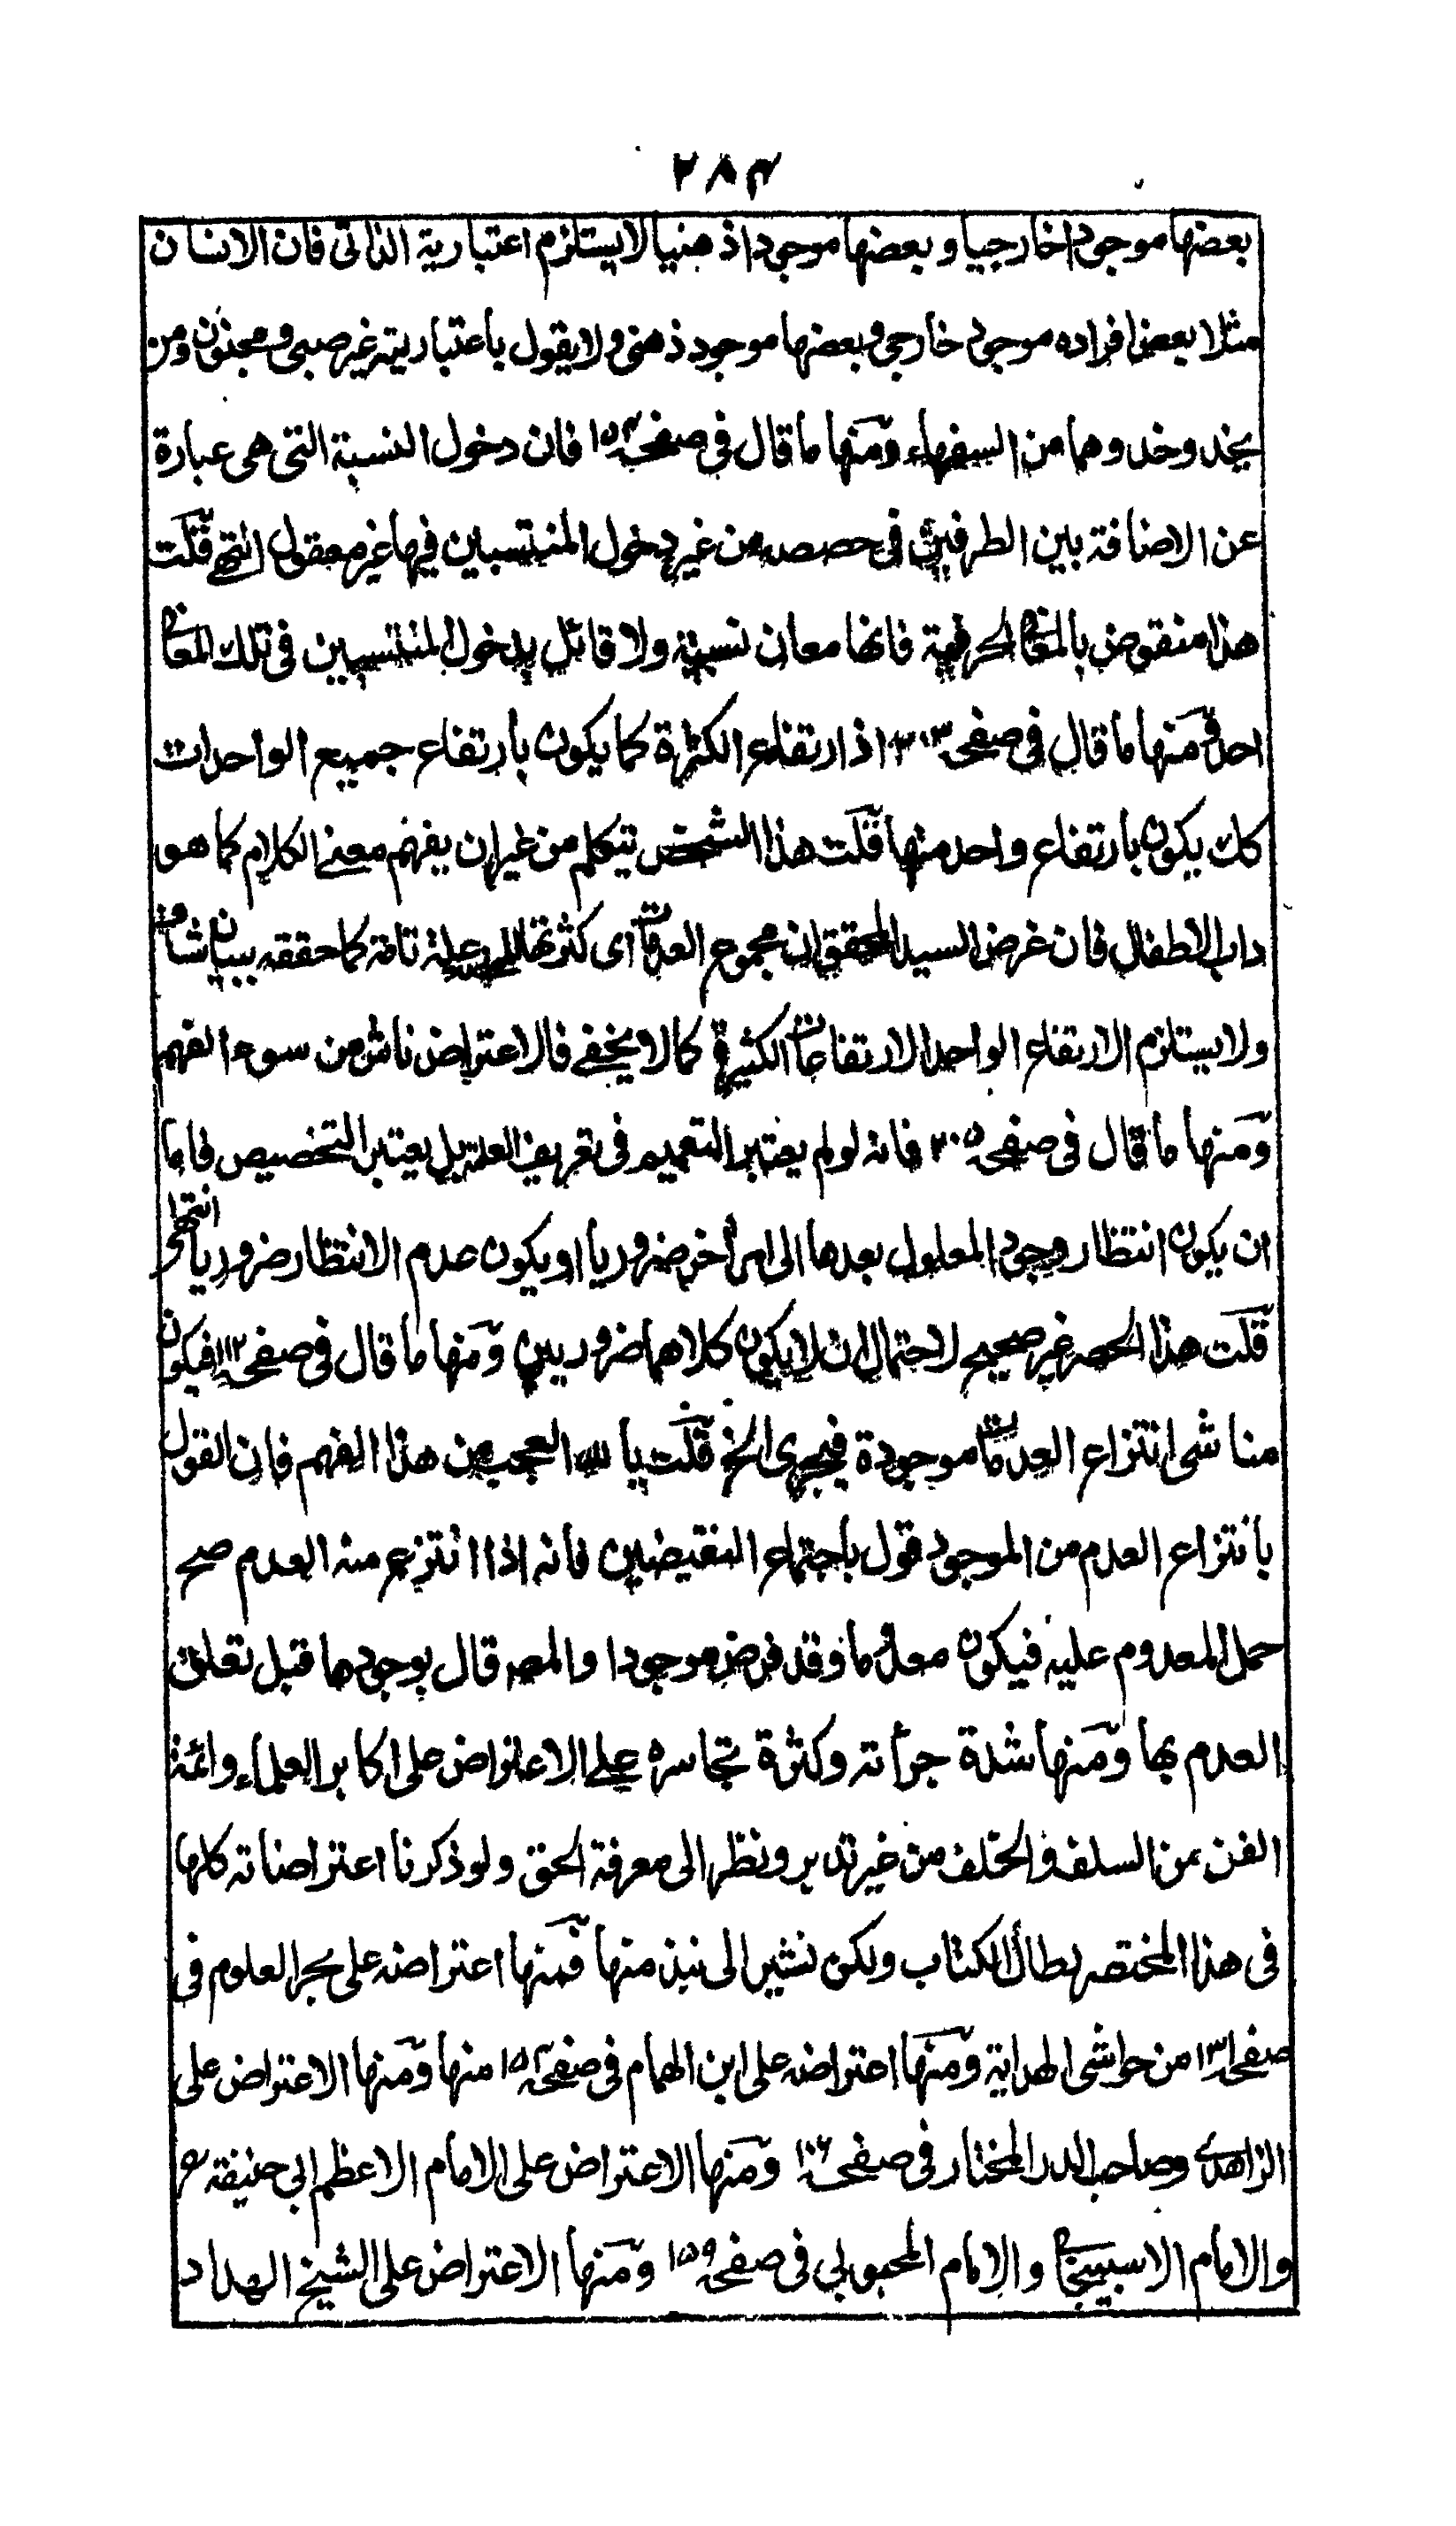 ٢٨٤
بعضها موجودا خارجيا و بعضها موجودا ذهنيا لا يستلزم اعتبارية الذاتى فان الانسان
مثلا بعض افراده موجود خارجى و بعضها موجود ذهنى ولا يقول باعتباريته غير صبى و مجنون ومن
يخد وخد وهما من السفهاء ومنها ما قال فى صفحه ١٥٢ فان دخول النسبة التى هى عبارة
عن الاضافة بين الطرفين فى حصصه من غير دخول المنتسبين فيها غير معقول انتهى قلت
هذا منقوض بالمعانى الحرفية فانها معان نسبية ولا قائل بدخول المنتسبين فى تلك المعانى
احد ومنها ما قال فى صفحه ٢٠٣ اذ ارتفاع الكثرة كما يكون بارتفاع جميع الواحدات
كك يكون بارتفاع واحد منها قلت هذا الشخص تيكلم من غير ان يفهم معنى الكلام كما هو
داب الاطفال فان غرض السيد المحقق ان مجموع العدمات اى كثرتها للعدم علة تامة كما حققه ببيان شاف
ولا يستلزم الارتفاع الواحد الارتفاعات الكثيرة كما لا يخفے فالاعتراض ناش من سوء الفهم
ومنها ما قال فى صفحه ٢٠٥ فانه لو لم يعتبر التعميم فى تعريف العلة بل يعتبر التخصيص فاما
ان يكون انتظار وجود المعلول بعدها الى امر أخر ضروريا او يكون عدم الانتظار ضروريا انتهى
قلت هذا الحصر غير صحيح لاحتمال ان لا يكون كلاهما ضروريين ومنها ما قال فى صفحه ١١٢ فيكون
مناشى انتزاع العدمات موجودة فيجرى الخ قلت يا لله العجب من هذا الفهم فان القول
بانتزاع العدم من الموجود قول باجتماع النقيضين فانه اذا انتزع منه العدم صح
حمل المعدوم عليه فيكون معدوما وقد فرض موجودا والمص قال بوجودها قبل تعلق
العدم بها ومنها شدة جرأته وكثرة تجاسره علے الاعتراض على اكابر العلماء وائمة
الفن من السلف والخلف من غير تدبر ونظر الى معرفة الحق ولو ذكرنا اعتراضاته كلها
فى هذا المختصر لطال الكتاب ولكن نشير الى نبذ منها فمنها اعتراضه على بحر العلوم فى
صفحه ١٣١ من حواشى الهداية ومنها اعتراضه على ابن الهمام فى صفحه ١٥٢ منها ومنها الاعتراض على
الزاهدے وصاحب الدر المختار فى صفحه ١٠٦ ومنها الاعتراض على الامام الاعظم ابى حنيفة رح
والامام الاسبيجابى والامام المحبوبى فى صفحه ١٥٩ ومنها الاعتراض على الشيخ الهداد